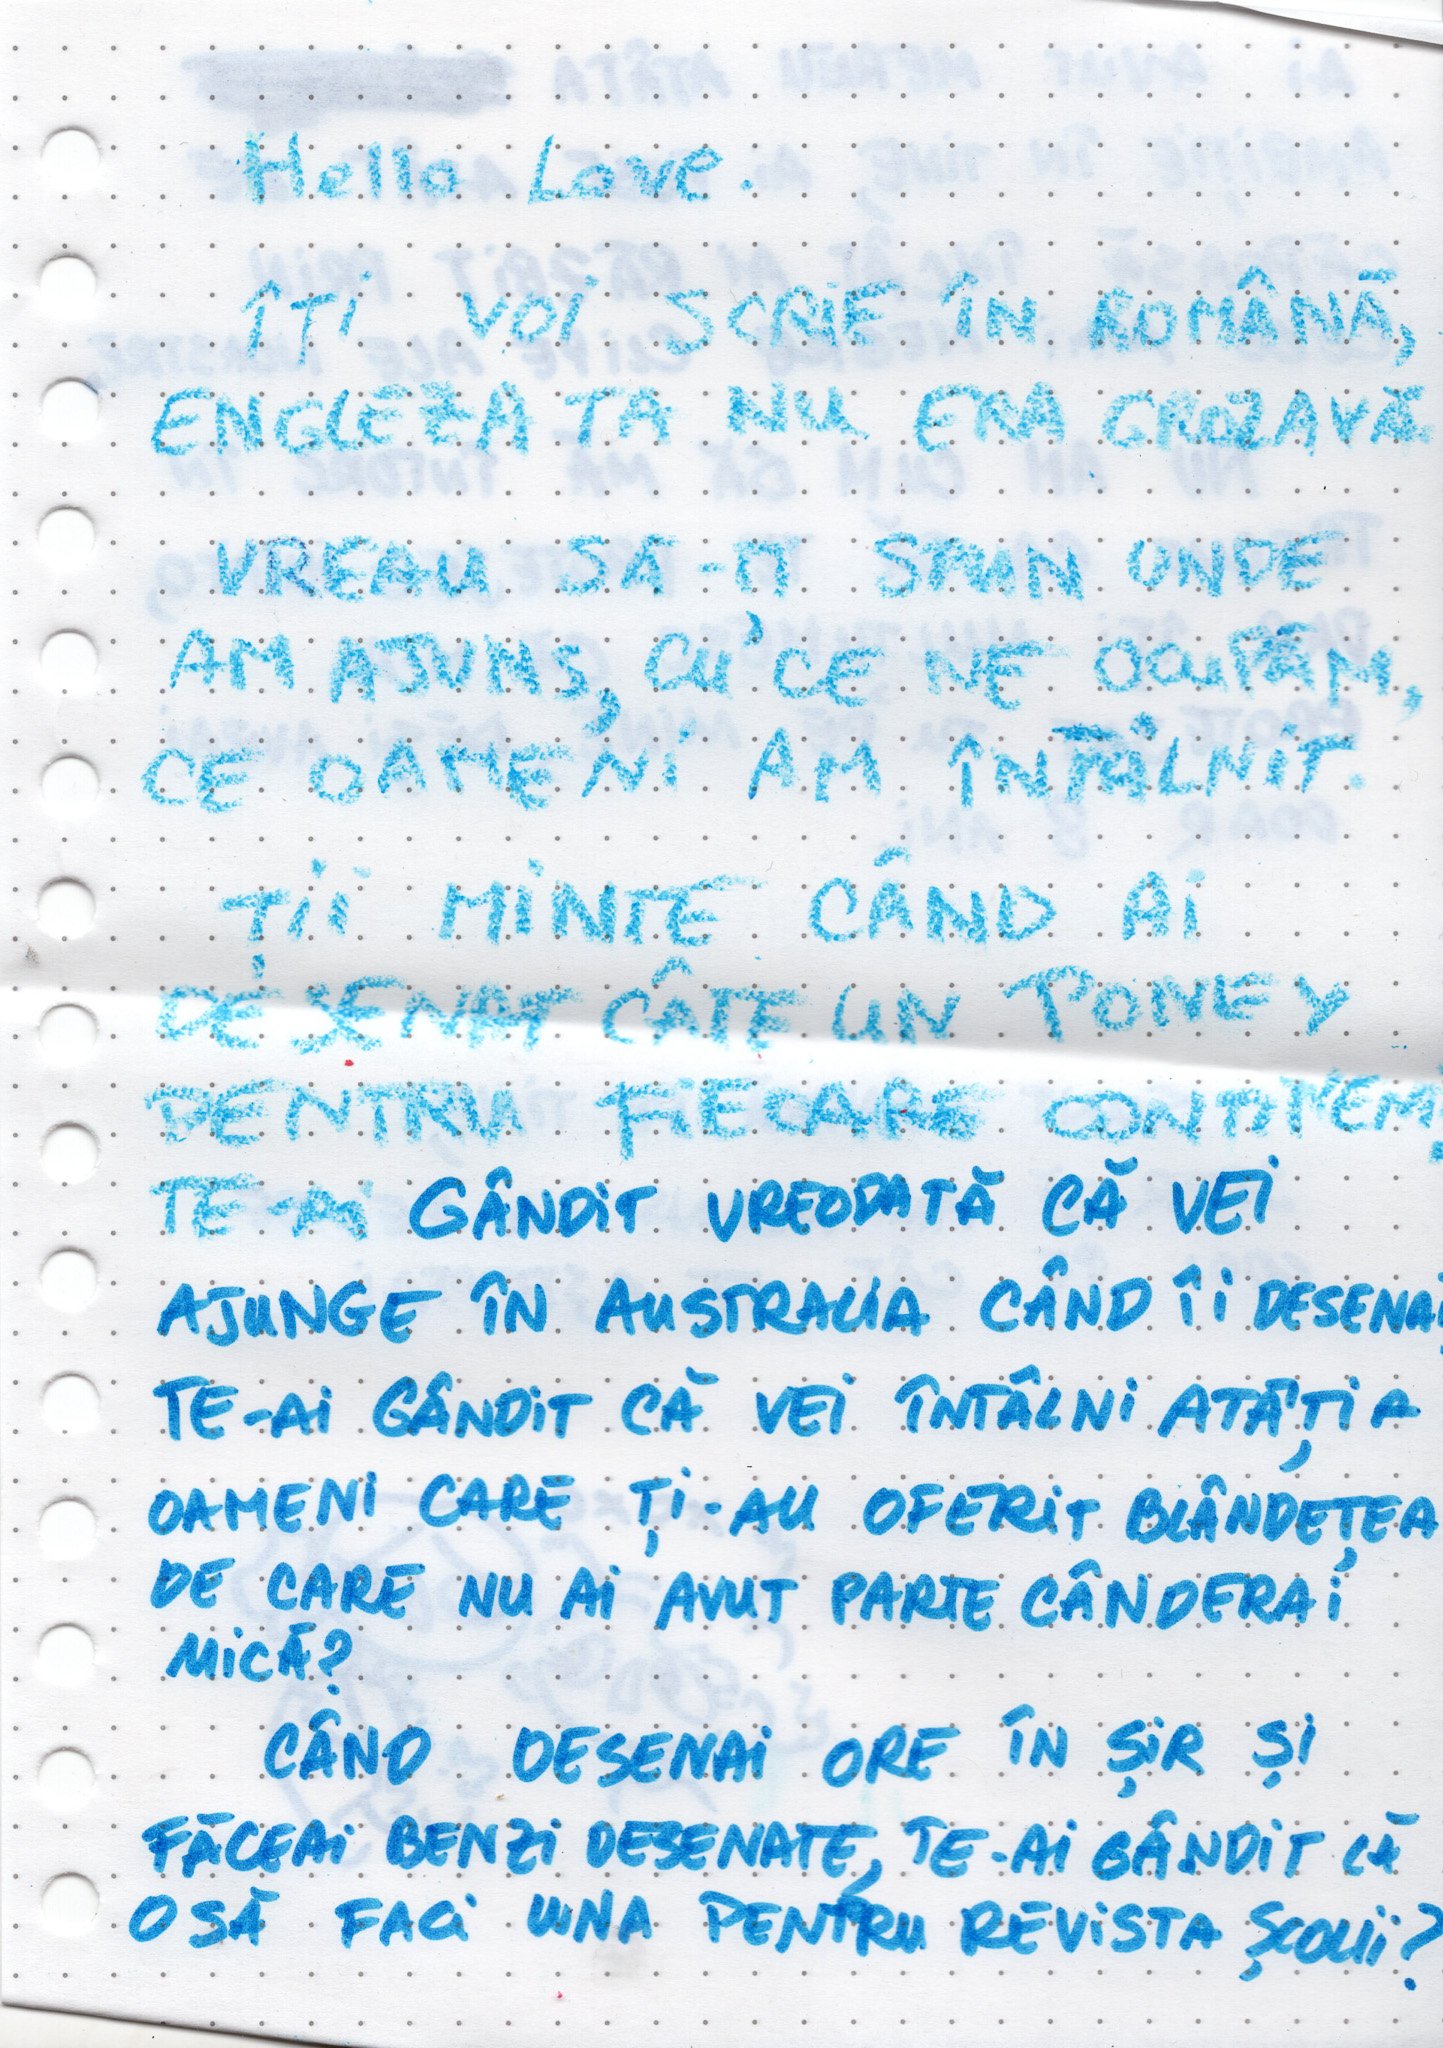 Hello Love.
ÎȚI VOI SCRIE ÎN ROMÂNĂ,
ENGLEZA TA NU ERA GROZAVĂ
VREAU SĂ-ȚI SPUN UNDE
AM AJUNS, CU CE NE OCUPĂM,
CE OAMENI AM ÎNTÂLNIT.
ȚII MINTE CÂND AI
DESENAT CÂTE UN PONEY
PENTRU FIECARE CONTINENT,
TE-AI GÂNDIT VREODATĂ CĂ VEI
AJUNGE ÎN AUSTRALIA CÂND ÎI DESENAI,
TE-AI GÂNDIT CĂ VEI ÎNTÂLNI ATÂȚIA
OAMENI CARE ȚI-AU OFERIT BLÂNDEȚEA
DE CARE NU AI AVUT PARTE CÂND ERAI
MICĂ?
CÂND DESENAI ORE ÎN ȘIR ȘI
FĂCEAI BENZI DESENATE, TE-AI GÂNDIT CĂ
O SĂ FACI UNA PENTRU REVISTA ȘCOLII?